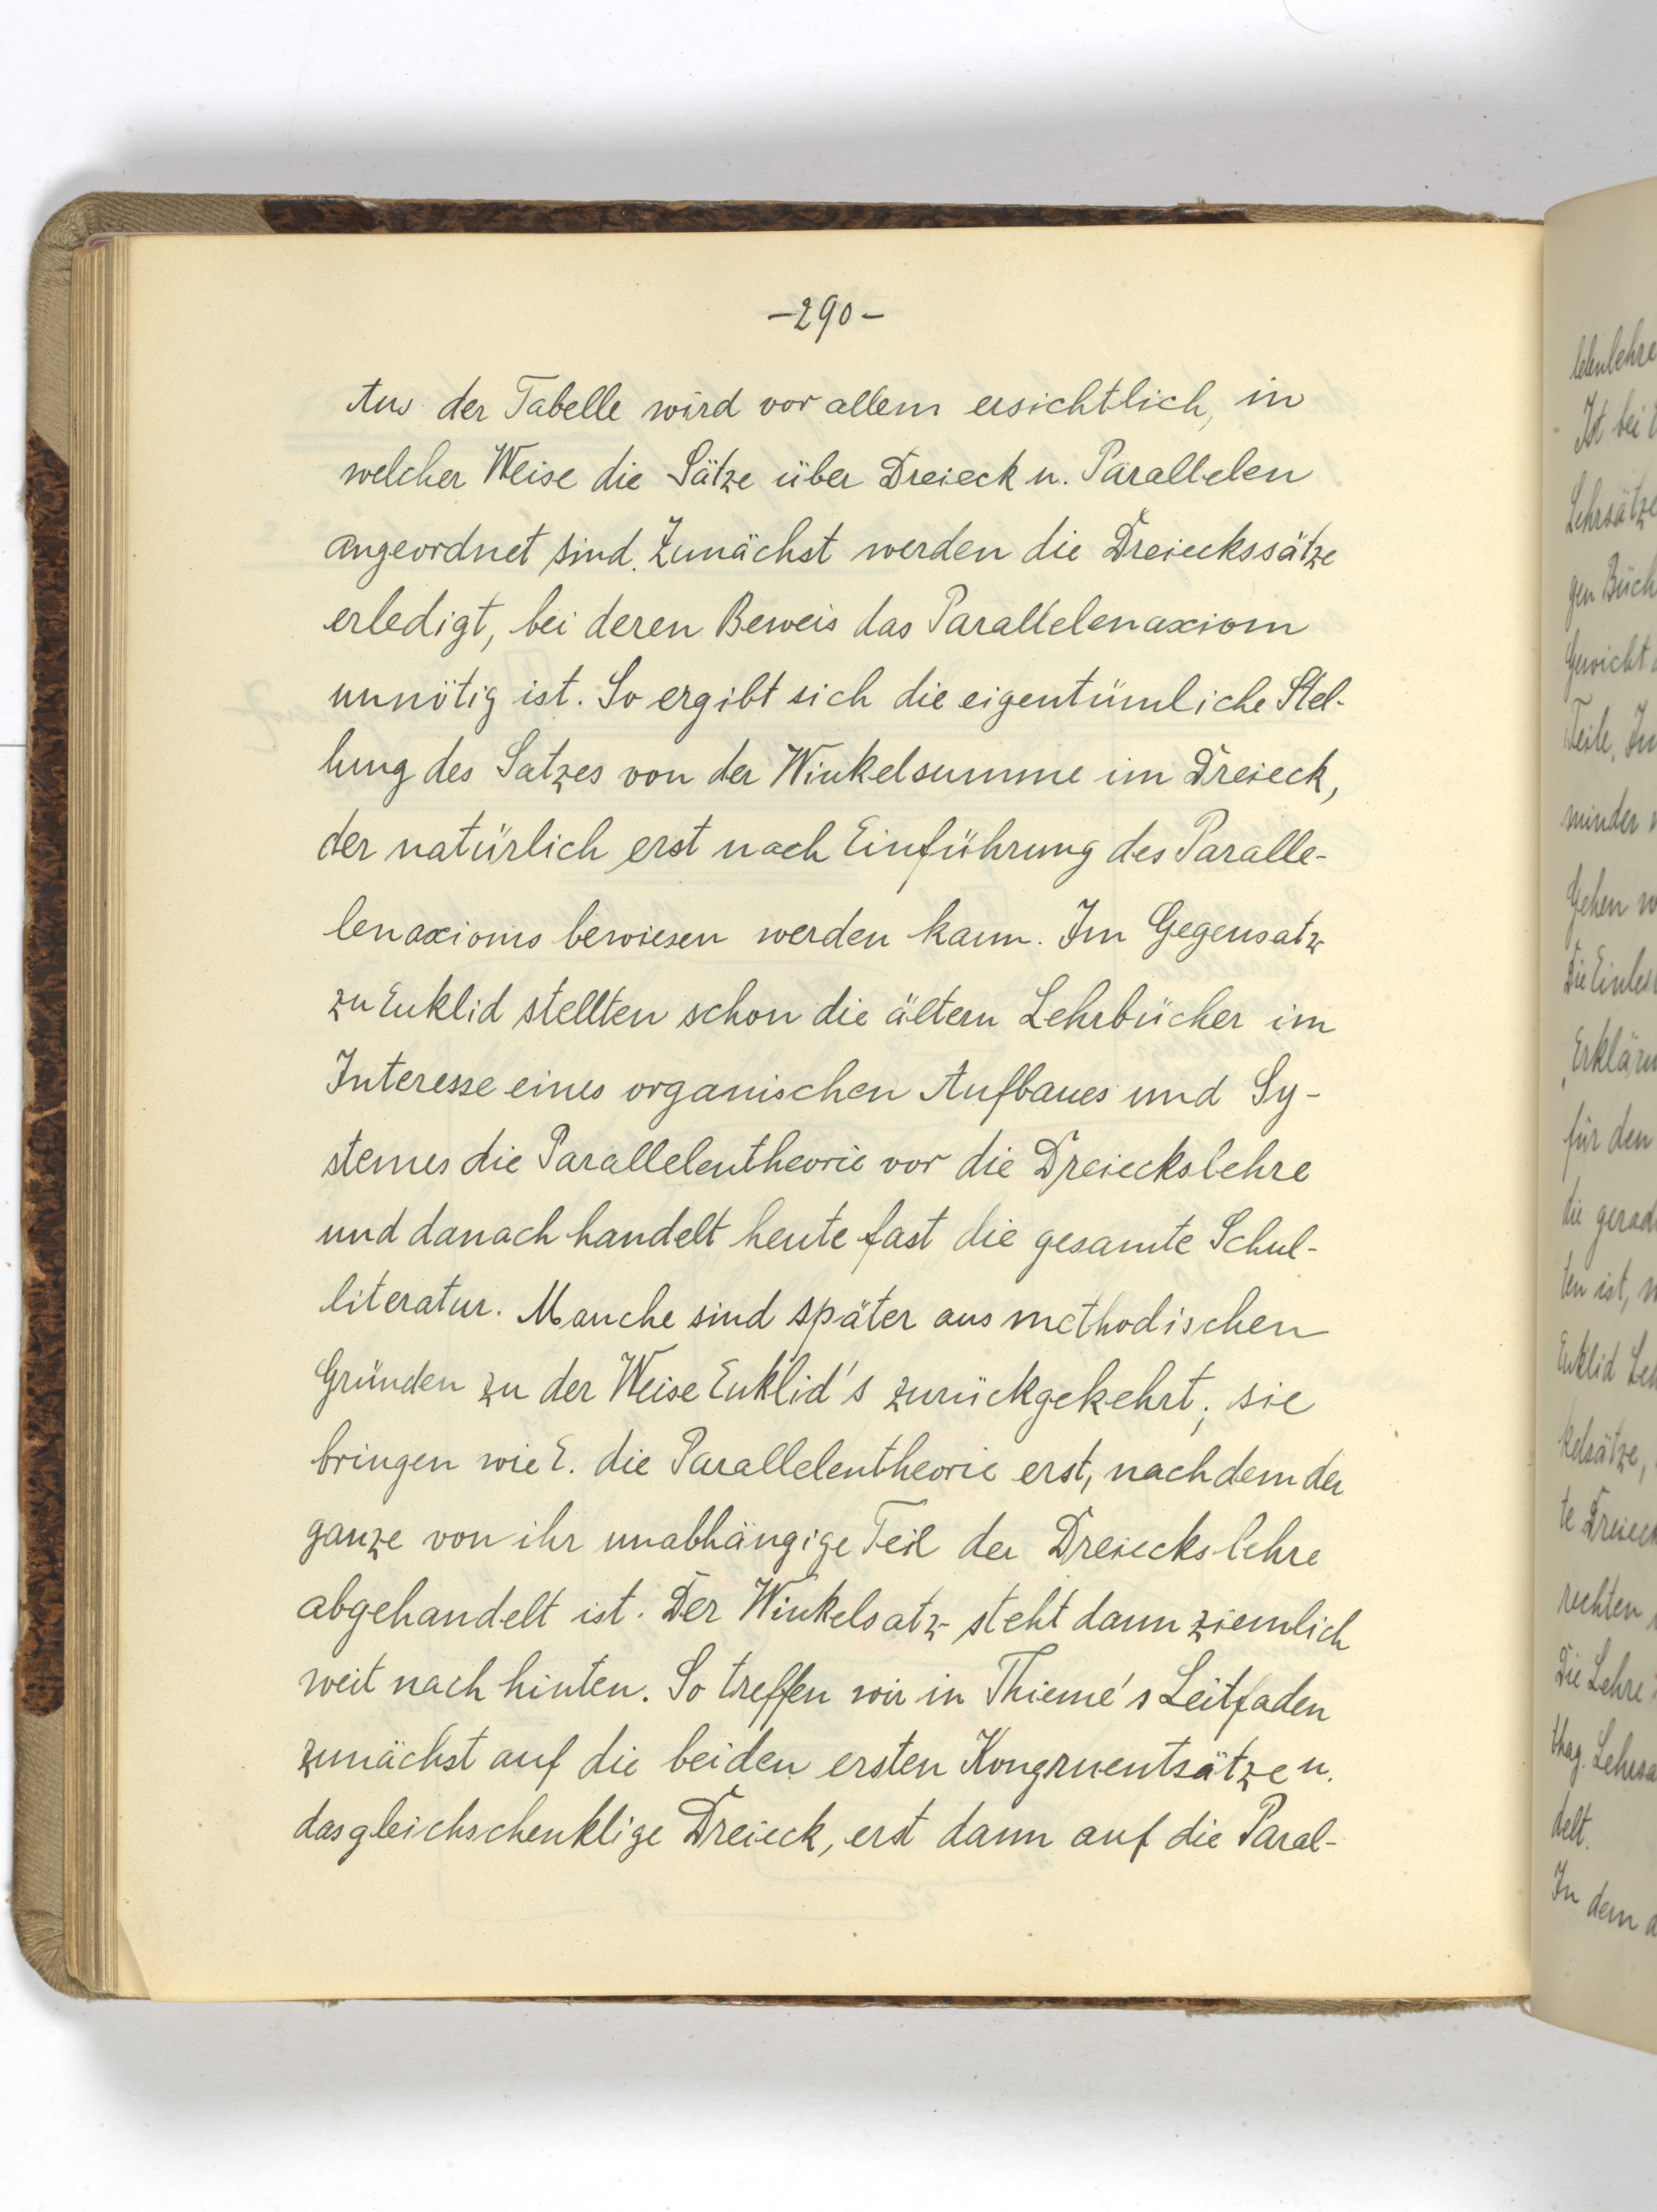 -290-
Aus der Tabelle wird vor allem ersichtlich, in
welcher Weise die Sätze über Dreieck u. Parallelen
angeordnet sind. Zunächst werden die Dreieckssätze
erledigt, bei deren Beweis das Parallelenaxiom
unnötig ist. So ergibt sich die eigentümliche Stel-
lung des Satzes von der Winkelsumme im Dreieck,
der natürlich erst nach Einführung des Paralle-
lenaxioms bewiesen werden kann. Im Gegensatz
zu Euklid stellten schon die ältern Lehrbücher im
Interesse eines organischen Aufbaues und Sy-
stemes die Parallelentheorie vor die Dreieckslehre
und danach handelt heute fast die gesamte Schul-
literatur. Manche sind später aus methodischen
Gründen zu der Weise Euklid's zurückgekehrt; sie
bringen wie E. die Parallelentheorie erst, nachdem der
ganze von ihr unabhängige Teil der Dreieckslehre
abgehandelt ist. Der Winkelsatz steht dann ziemlich
weit nach hinten. So treffen wir in Thieme's Leitfaden
zunächst auf die beiden ersten Kongruentsätze u.
das gleichschenklige Dreieck, erst dann auf die Paral-
lelenlehre
Ist bei
Lehrsätze
gen Büch
Gewicht
Teile. In
minder
Gehen
Die
für den
die gerad
ten ist,
Euklid
kelsätze,
te Dreieck
rechten
Die Lehre
thag. Lehrsa
delt.
In dem